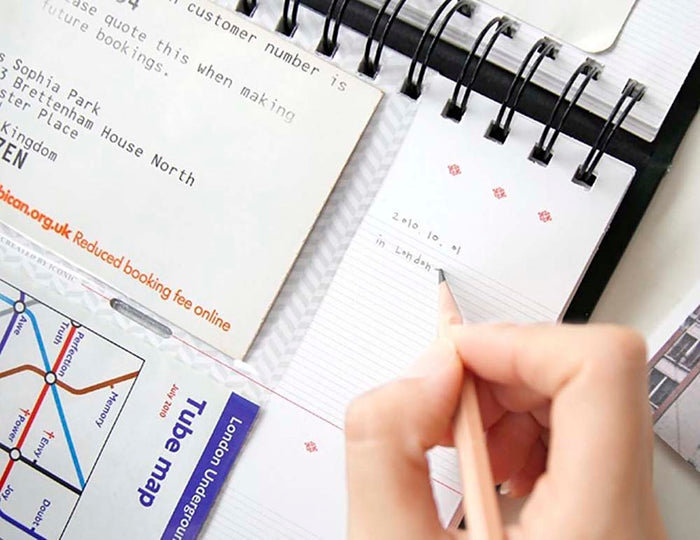 customer number is
quote this when making
future bookings.
Sophia Park
3 Brettenham House North
Place
Kingdom
bican.org.uk Reduced booking fee online
CREATED BY ICONIC
2010. 10. 01
in London
London Undergroun
Tube map
July 2010
Awe
Truth
Perfection
Memory
Power
Envy
Joy
Doubt